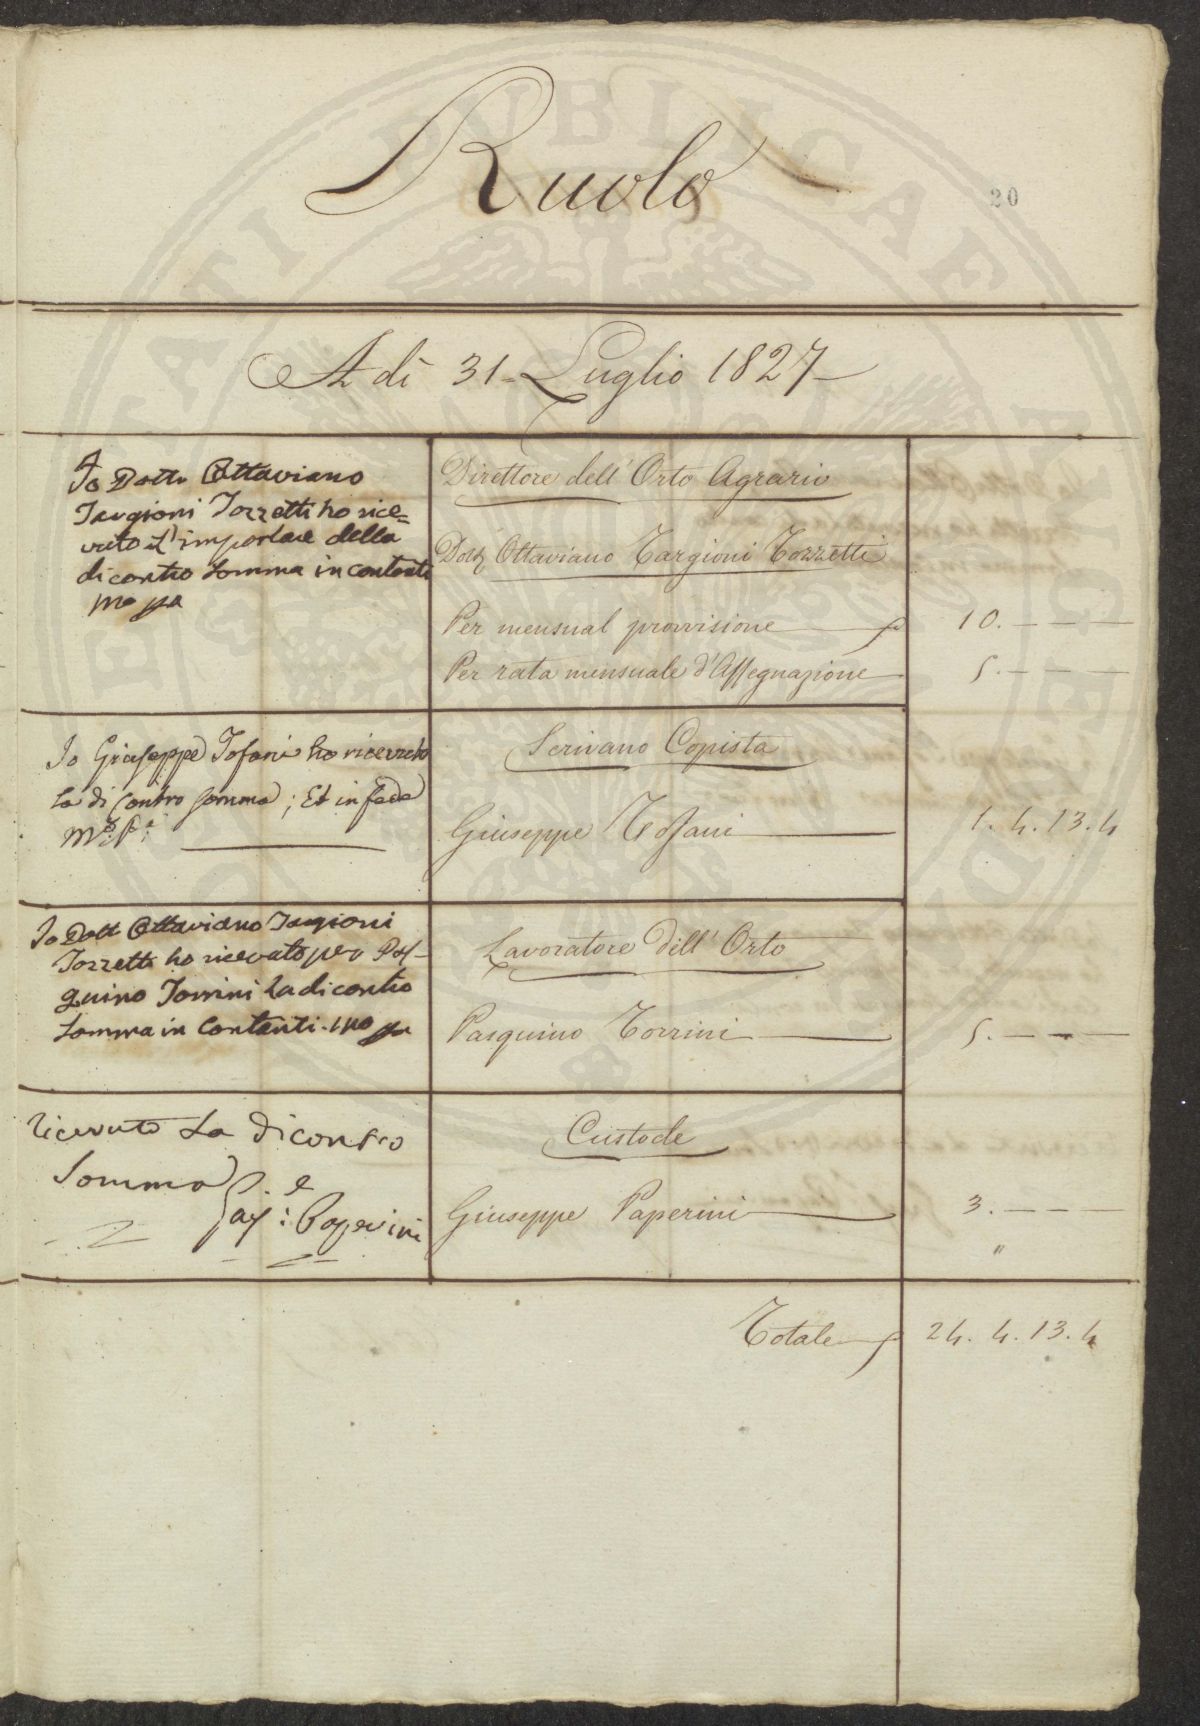 Ruolo
20
A dì 31 Luglio 1827
Io Dottr Ottaviano
Targioni Tozzetti ho rice=
vuto l'importare della
di contro Somma in contanti
mo ppa
Direttore dell'Orto Agrario
Dott Ottaviano Targioni Tozzetti
Per mensual provvisione 10. — — —
Per rata mensuale d'Assegnazione 5. — — —
Io Giuseppe Tofani ho ricevuto
la di contro somma; Et in fede
Mo Pa
Scrivano Copista
Giuseppe Tofani 1. 4. 13. 4
Io Dott Ottaviano Targioni
Tozzetti ho ricevuto per Pas-
quino Torrini la di contro
Somma in Contanti. mo ppa
Lavoratore dell'Orto
Pasquino Torrini 5. — — —
ricevuto la di contro
Somma
Paperini
Custode
Giuseppe Paperini 3. — — —
"
Totale 24. 4. 13. 4